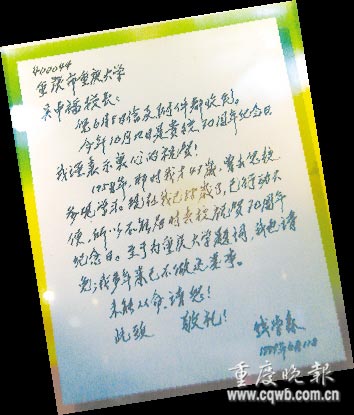 400044
重庆市重庆大学
吴中福校长:
您6月5日信及附件都收到。
今年10月12日是贵校70周年纪念日
我谨表示衷心的祝贺!
1958年,那时我才47岁,曾去贵校
参观学习。现在我已88岁了,已行动不
便,所以不能应时去校祝贺70周年
纪念日。至于为重庆大学题词,我也请
免;我多年来已不做这类事。
未能从命,请恕!
此致 敬礼!
钱学森
1999年6月11日
重庆晚报
www.cqwb.com.cn